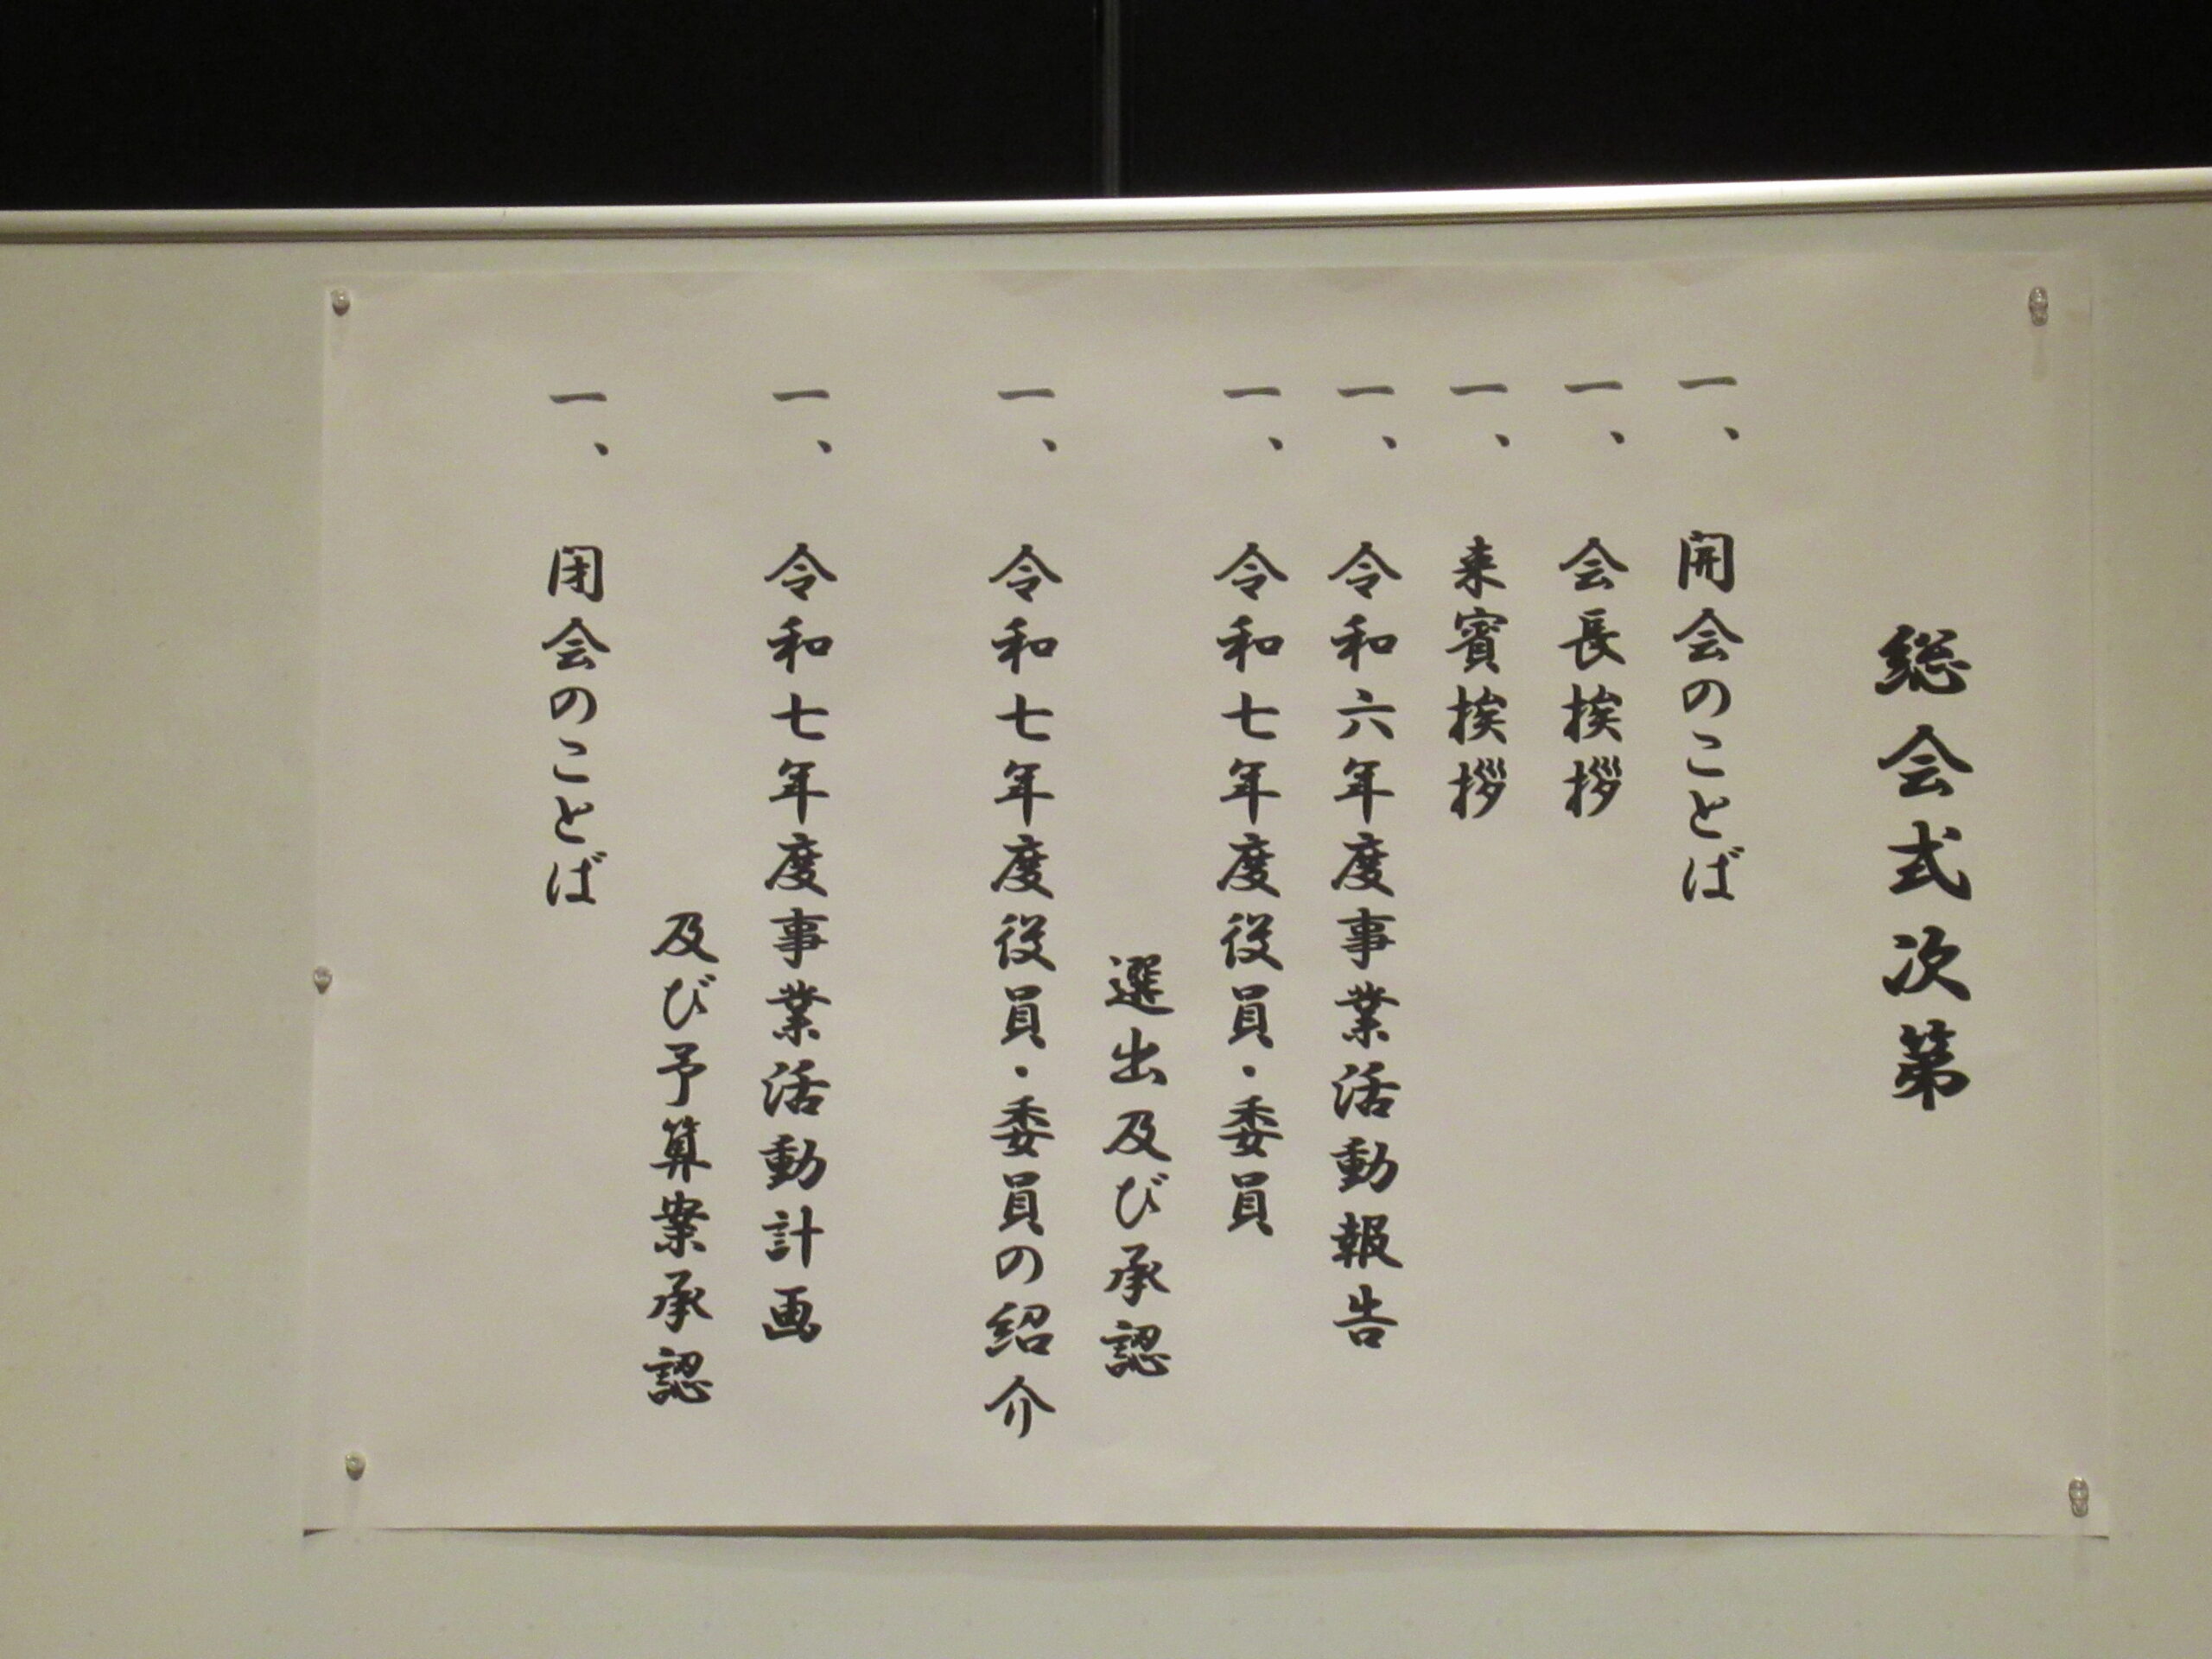 総会式次第
一、開会のことば
一、会長挨拶
一、来賓挨拶
一、令和六年度事業活動報告
一、令和七年度役員・委員
選出及び承認
一、令和七年度役員・委員の紹介
一、令和七年度事業活動計画
及び予算案承認
一、閉会のことば